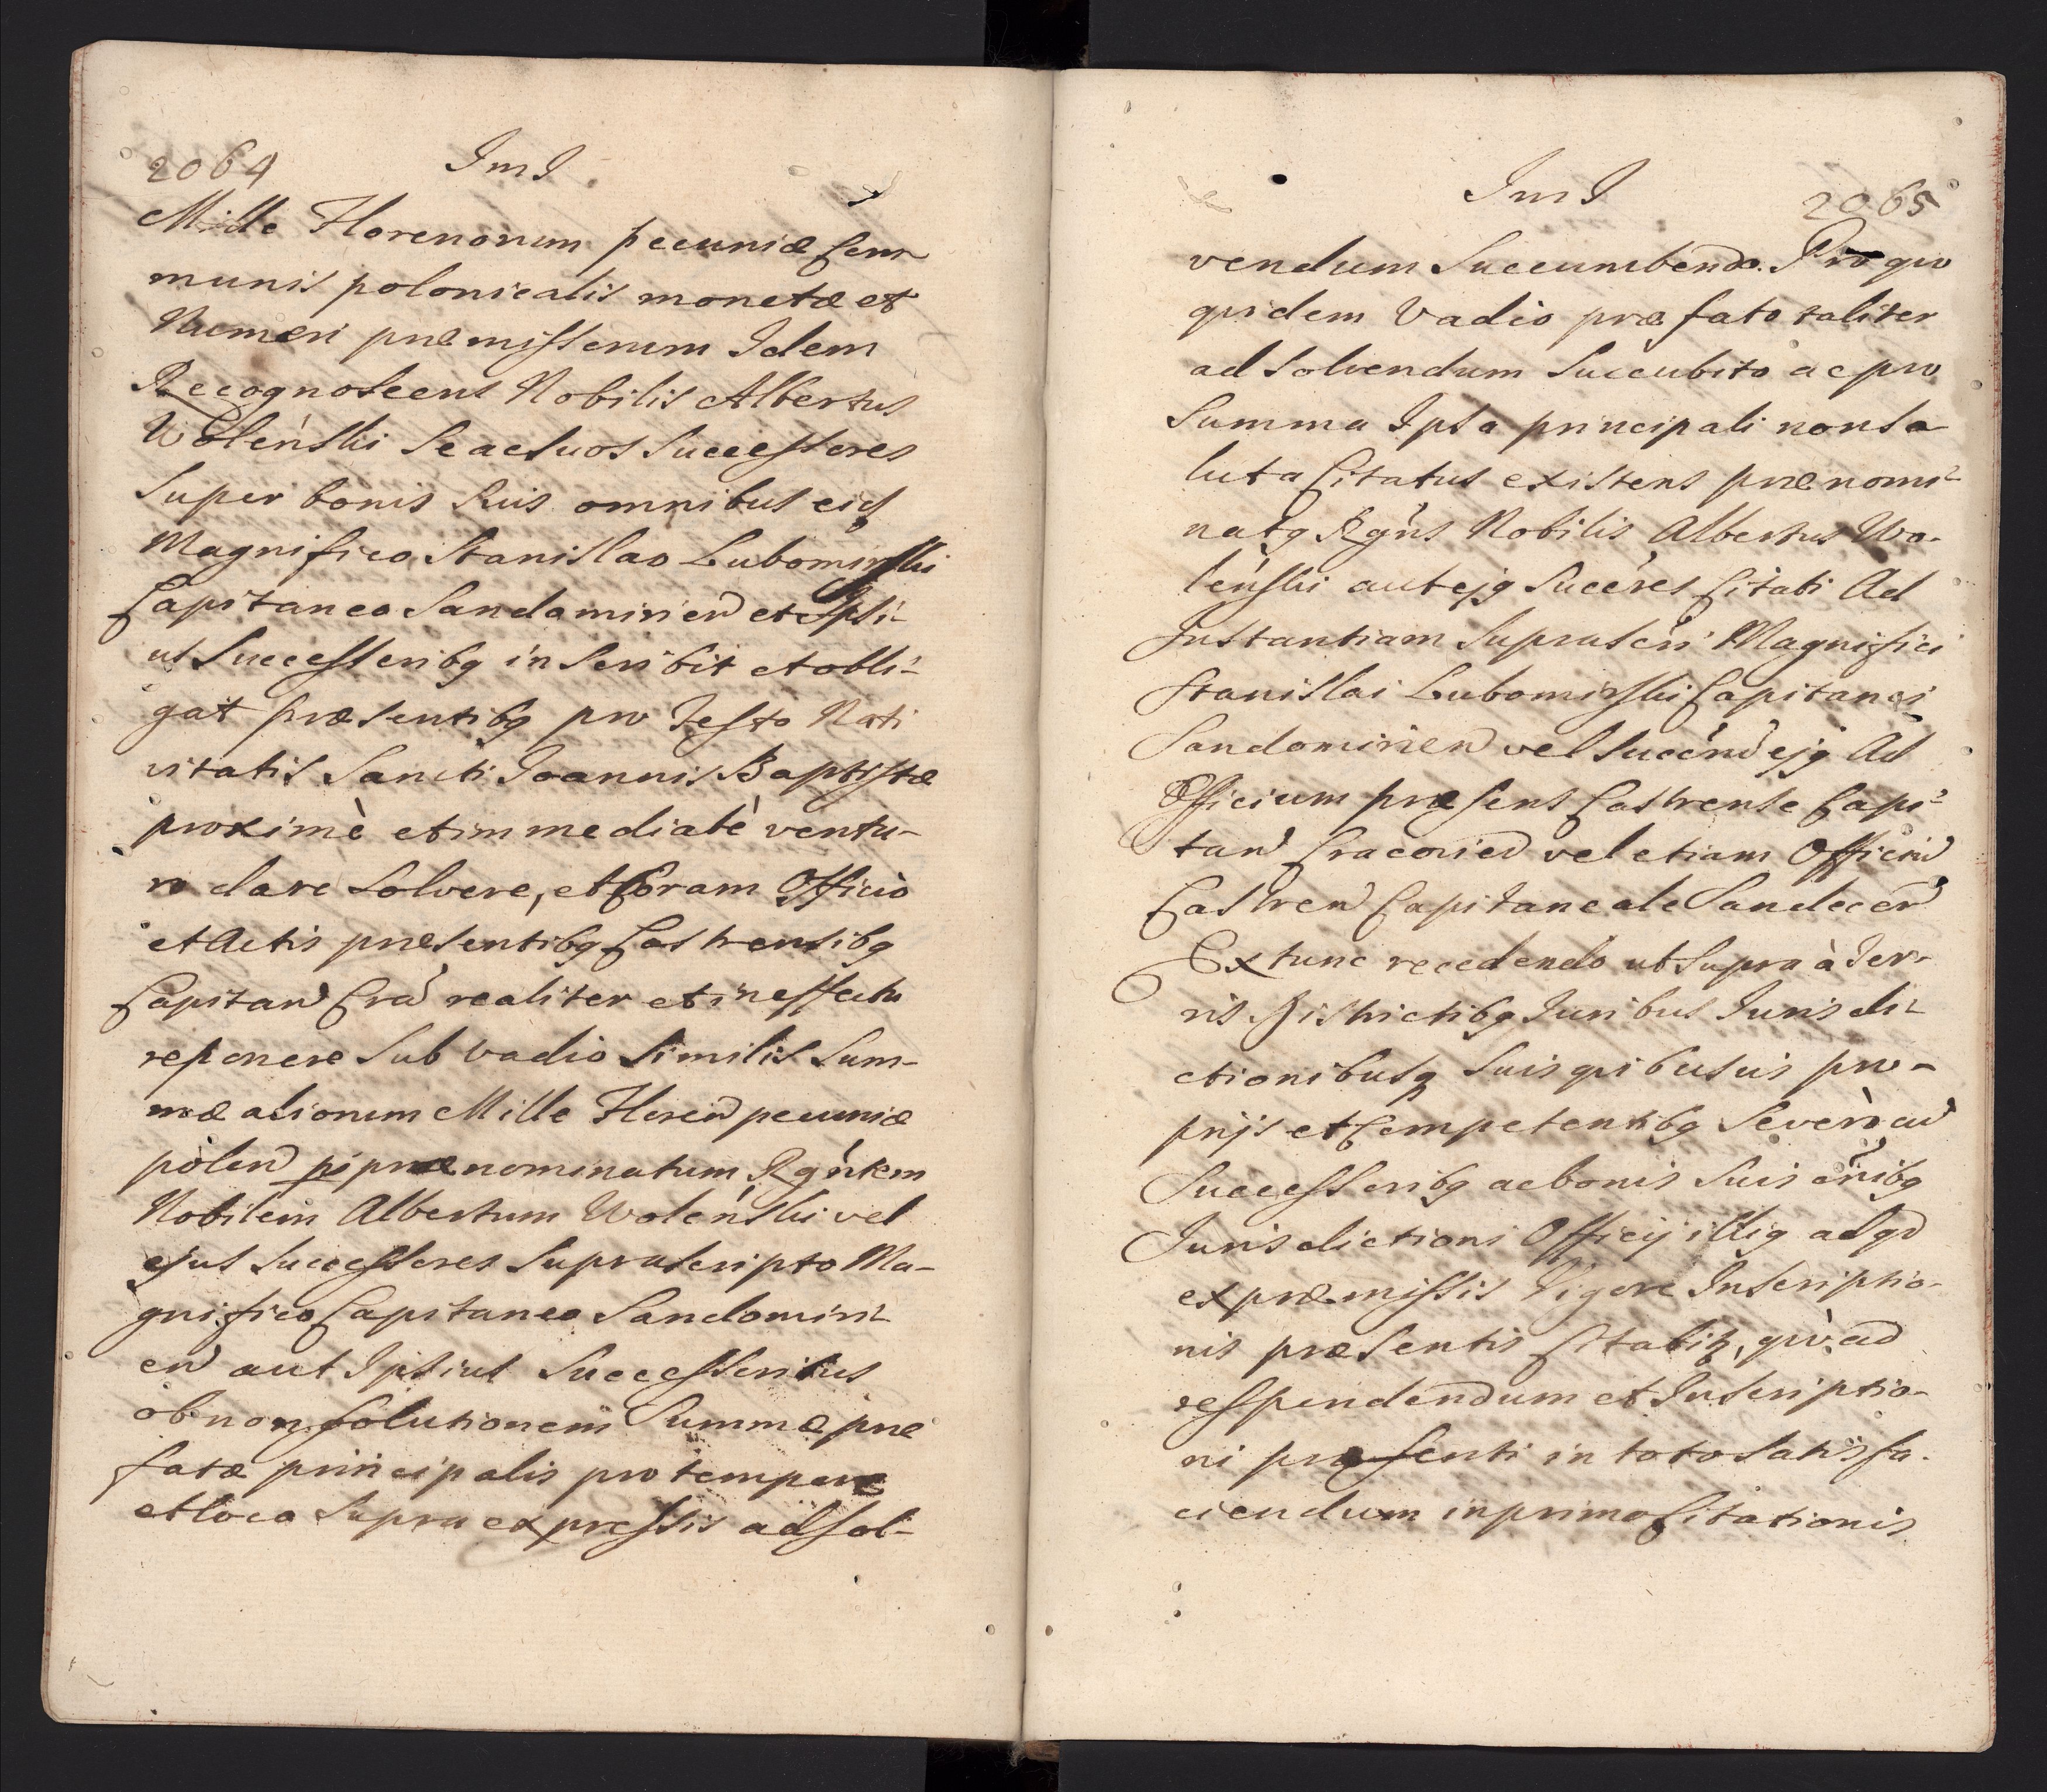 2064 ImI
Mille Florenorum pecuniæ Com-
munis polonicalis monetæ et
Numeri præmissorum Idem
Recognoscens Nobilis Albertus
Woleński Se ac suos Successores
Super bonis Suis omnibus eidq
Magnifico Stanislao Lubomirski
Capitaneo Sandomirien et Ipsi-
us Successoribq inscribit et obli-
gat præsentibq pro Festo Nati
vitatis Sancti Joannis Baptistæ
proximè et immediatè ventu-
ro dare Solvere, et Coram Officio
et Actis præsentibq Castrensibq
Capitan Cra realiter et in effectu
reponere Sub vadio Similis Sum-
mæ aliorum Mille Floren pecuniæ
polon p prænominatum Rgńtem
Nobilem Albertum Woleński vel
ejus Successores Suprascripto Ma-
gnifico Capitaneo Sandomiri-
en aut Ipsius Successoribus
ob non solutionem Summæ præ
fatæ principalis pro tempore
et loco Supra expressis ad sol-
ImI 2065
vendum Succumbendo. Pro quo
quidem Vadio præfato taliter
ad Solvendum Succubito ac pro
Summa Ipsa principali non so
luta Citatus existens prænomi-
natq Rgńs Nobilis Albertus Wo-
leński aut ejq Succéres Citati Ad
Instantiam Suprascri Magnifici
Stanislai Lubomirski Capitanei
Sandomirien vel Succérũ ejq Ad
Officium præsens Castrense Capi-
tan Cracovien vel etiam Officiũ
Castren Capitaneale Sandecen
Extunc recedendo ut Supra à Ter-
ris Districtibq Juribus Jurisdi-
ctionibusq Suis quibusvis pro-
prijs et Competentibq Severò cũ
Successoribq ac bonis Suis oñibq
Jurisdictioni Officij illiq ad qd
ex præmissis Vigore Inscriptio-
nis præsentis Citabitr, quò ad
respondendum et Inscriptio-
ni præsenti in toto Satisfa-
ciendum in primo Citationis